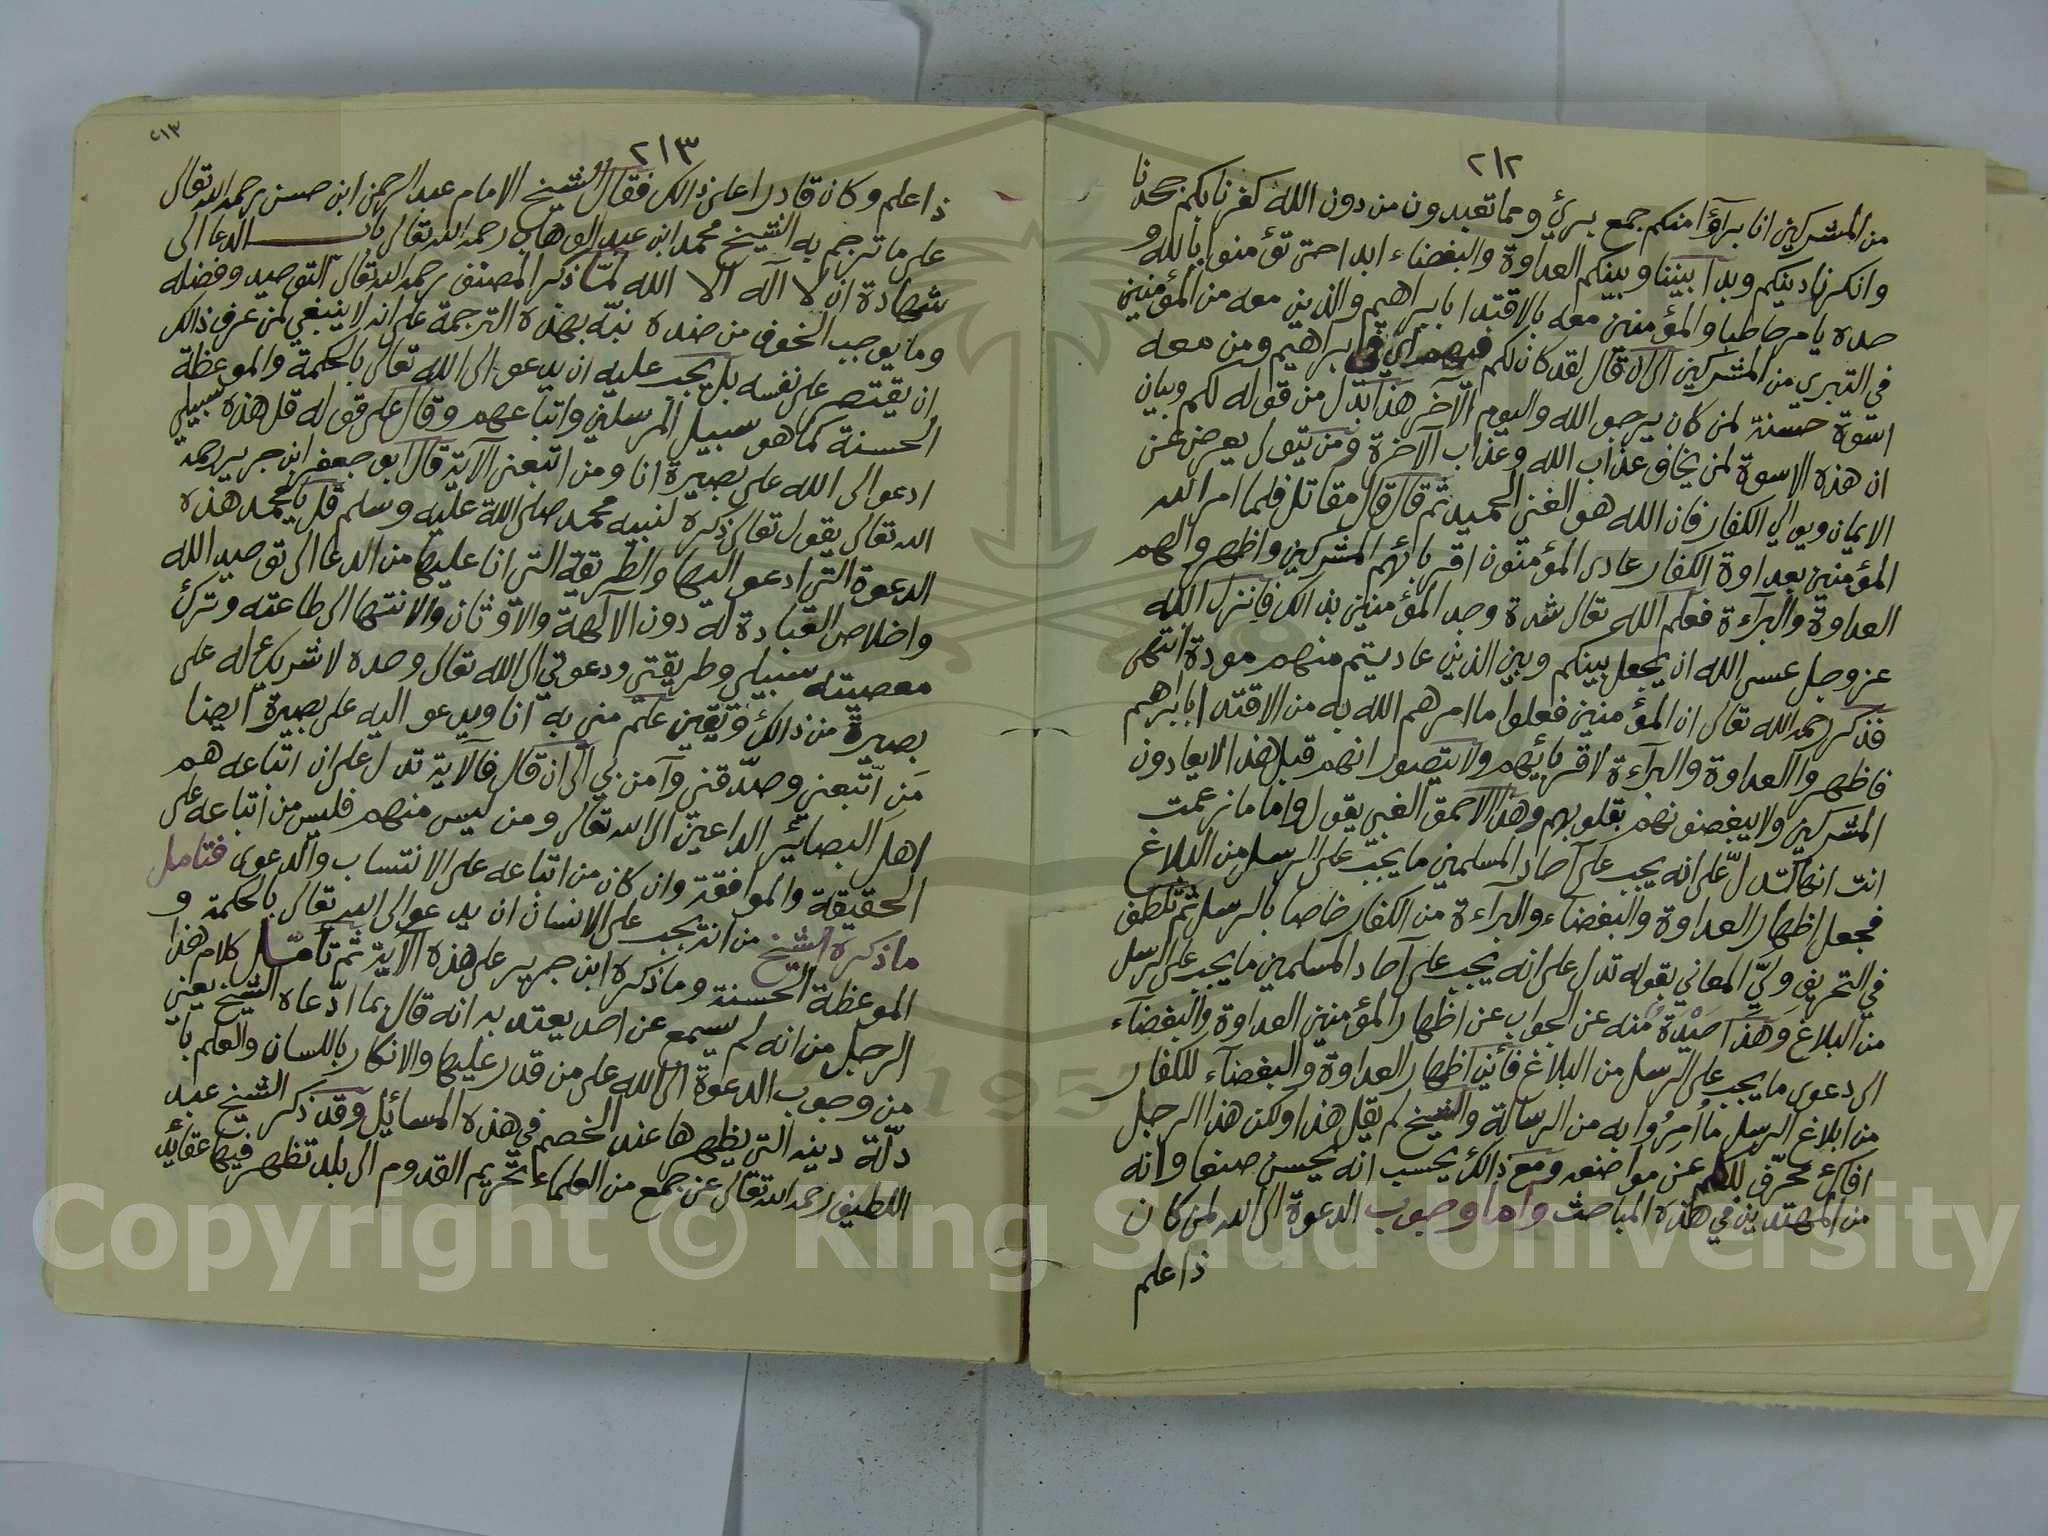 ٢١٢
من المشركين انا برآؤا منكم جمع بريء ومما تعبدون من دون الله كفرنا بكم جحدنا
وانكرنا دينكم وبدا بيننا وبينكم العداوة والبغضاء ابدا حتى تؤمنوا بالله و
حده يا مر حاطبا والمؤمنين معه بالاقتدا بابراهيم والذين معه من المؤمنين
في التبري من المشركين الى ان قال لقد كان لكم فيهم اي في ابراهيم ومن معه
اسوة حسنة لمن كان يرجو الله واليوم الآخر هذا بدل من قوله لكم وبيان
ان هذه الاسوة لمن يخاف عذاب الله وعذاب الآخرة ومن يتول يعرض عن
الايمان ويوالي الكفار فان الله هو الغني الحميد ثم قال قال مقاتل فلما امر الله
المؤمنين بعداوة الكفار عادى المؤمنون اقربائهم المشركين واظهروا لهم
العداوة والبرآءة فعلم الله تعالى شدة وجد المؤمنين بذالك فانزل الله
عز وجل عسى الله ان يجعل بينكم وبين الذين عاديتم منهم مودة انتهى
فذكر رحمه الله تعالى ان المؤمنين فعلوا ما امرهم الله به من الاقتدا بابراهيم
فاظهروا العداوة والبرآءة لاقربائهم ولا يتصور انهم قبل هذا لا يعادون
المشركين ولا يبغضونهم بقلوبهم وهذا الاحمق الغبي يقول واما ما زعمت
انت انها تدل على انه يجب على آحاد المسلمين ما يجب على الرسل من البلاغ
فجعل اظهار العداوة والبغضاء والبراءة من الكفار خاصا بالرسل ثم تلطف
في التحريف وليّ المعاني بقوله تدل على انه يجب على آحاد المسلمين ما يجب على الرسل
من البلاغ وهذا حيدة منه عن الجواب عن اظهار المؤمنين العداوة والبغضآء
الى دعوى ما يجب على الرسل من البلاغ فأين اظهار العداوة والبغضآء للكفار
من ابلاغ الرسل ما أُمِرُوا به من الرسالة والشيخ لم يقل هذا ولكن هذا الرجل
افاك محرّف للكلم عن مواضعه ومع ذالك يحسب انه يحسن صنعا وانه
من المهتدين في هذه المباحث واما وجوب الدعوة الى الله لمن كان
ذا علم
٢١٣
٢١٣
ذا علم وكان قادرا على ذالك فقال الشيخ الامام عبد الرحمن ابن حسن رحمه الله تعالى
على ما ترجم به الشيخ محمد ابن عبد الوهاب رحمه الله تعالى باب الدعا الى
شهادة ان لا اله الا الله لما ذكر المصنف رحمه الله تعالى التوحيد وفضله
وما يوجب الخوف من ضده نبّه بهذه الترجمة على انه لا ينبغي لمن عرف ذالك
ان يقتصر على نفسه بل يجب عليه ان يدعو الى الله تعالى بالحكمة والموعظة
الحسنة كما هو سبيل المرسلين واتباعهم وقال على قوله قل هذه سبيلي
ادعو الى الله على بصيرة انا ومن اتبعني الآية قال ابو جعفر ابن جرير رحمه
الله تعالى يقول تعالى ذكره لنبيه محمد صلى الله عليه وسلم قل يا محمد هذه
الدعوة التي ادعو اليها والطريقة التي انا عليها من الدعا الى توحيد الله
واخلاص العبادة له دون الآلهة والاوثان والانتها الى طاعته وترك
معصيته سبيلي وطريقتي ودعوتي الى الله تعالى وحده لا شريك له على
بصيرة من ذالك ويقين علم مني به انا ويدعو اليه على بصيرة ايضا
من اتّبعني وصدّقني وآمن بي الى ان قال فالآية تدل على ان اتباعه هم
اهل البصائر الداعين الى الله تعالى ومن ليس منهم فليس من اتباعه على
الحقيقة والموافقة وان كان من اتباعه على الانتساب والدعوى فتامل
ما ذكره الشيخ من انه يجب على الانسان ان يدعو الى الله تعالى بالحكمة و
الموعظة الحسنة وما ذكره ابن جرير على هذه الآية ثم تأمّل كلام هذا
الرجل من انه لم يسمع عن احد يعتد به انه قال بما ادّعاه الشيخ يعني
من وجوب الدعوة الى الله على من قدر عليها والانكار باللسان والعلم با
دلّة دينه التي يظهرها عند الخصم في هذه المسائل وقد ذكر الشيخ عبد
اللطيف رحمه الله تعالى عن جمع من العلماء تحريم القدوم الى بلد تظهر فيها عقائد
1957
Copyright © King Saud University